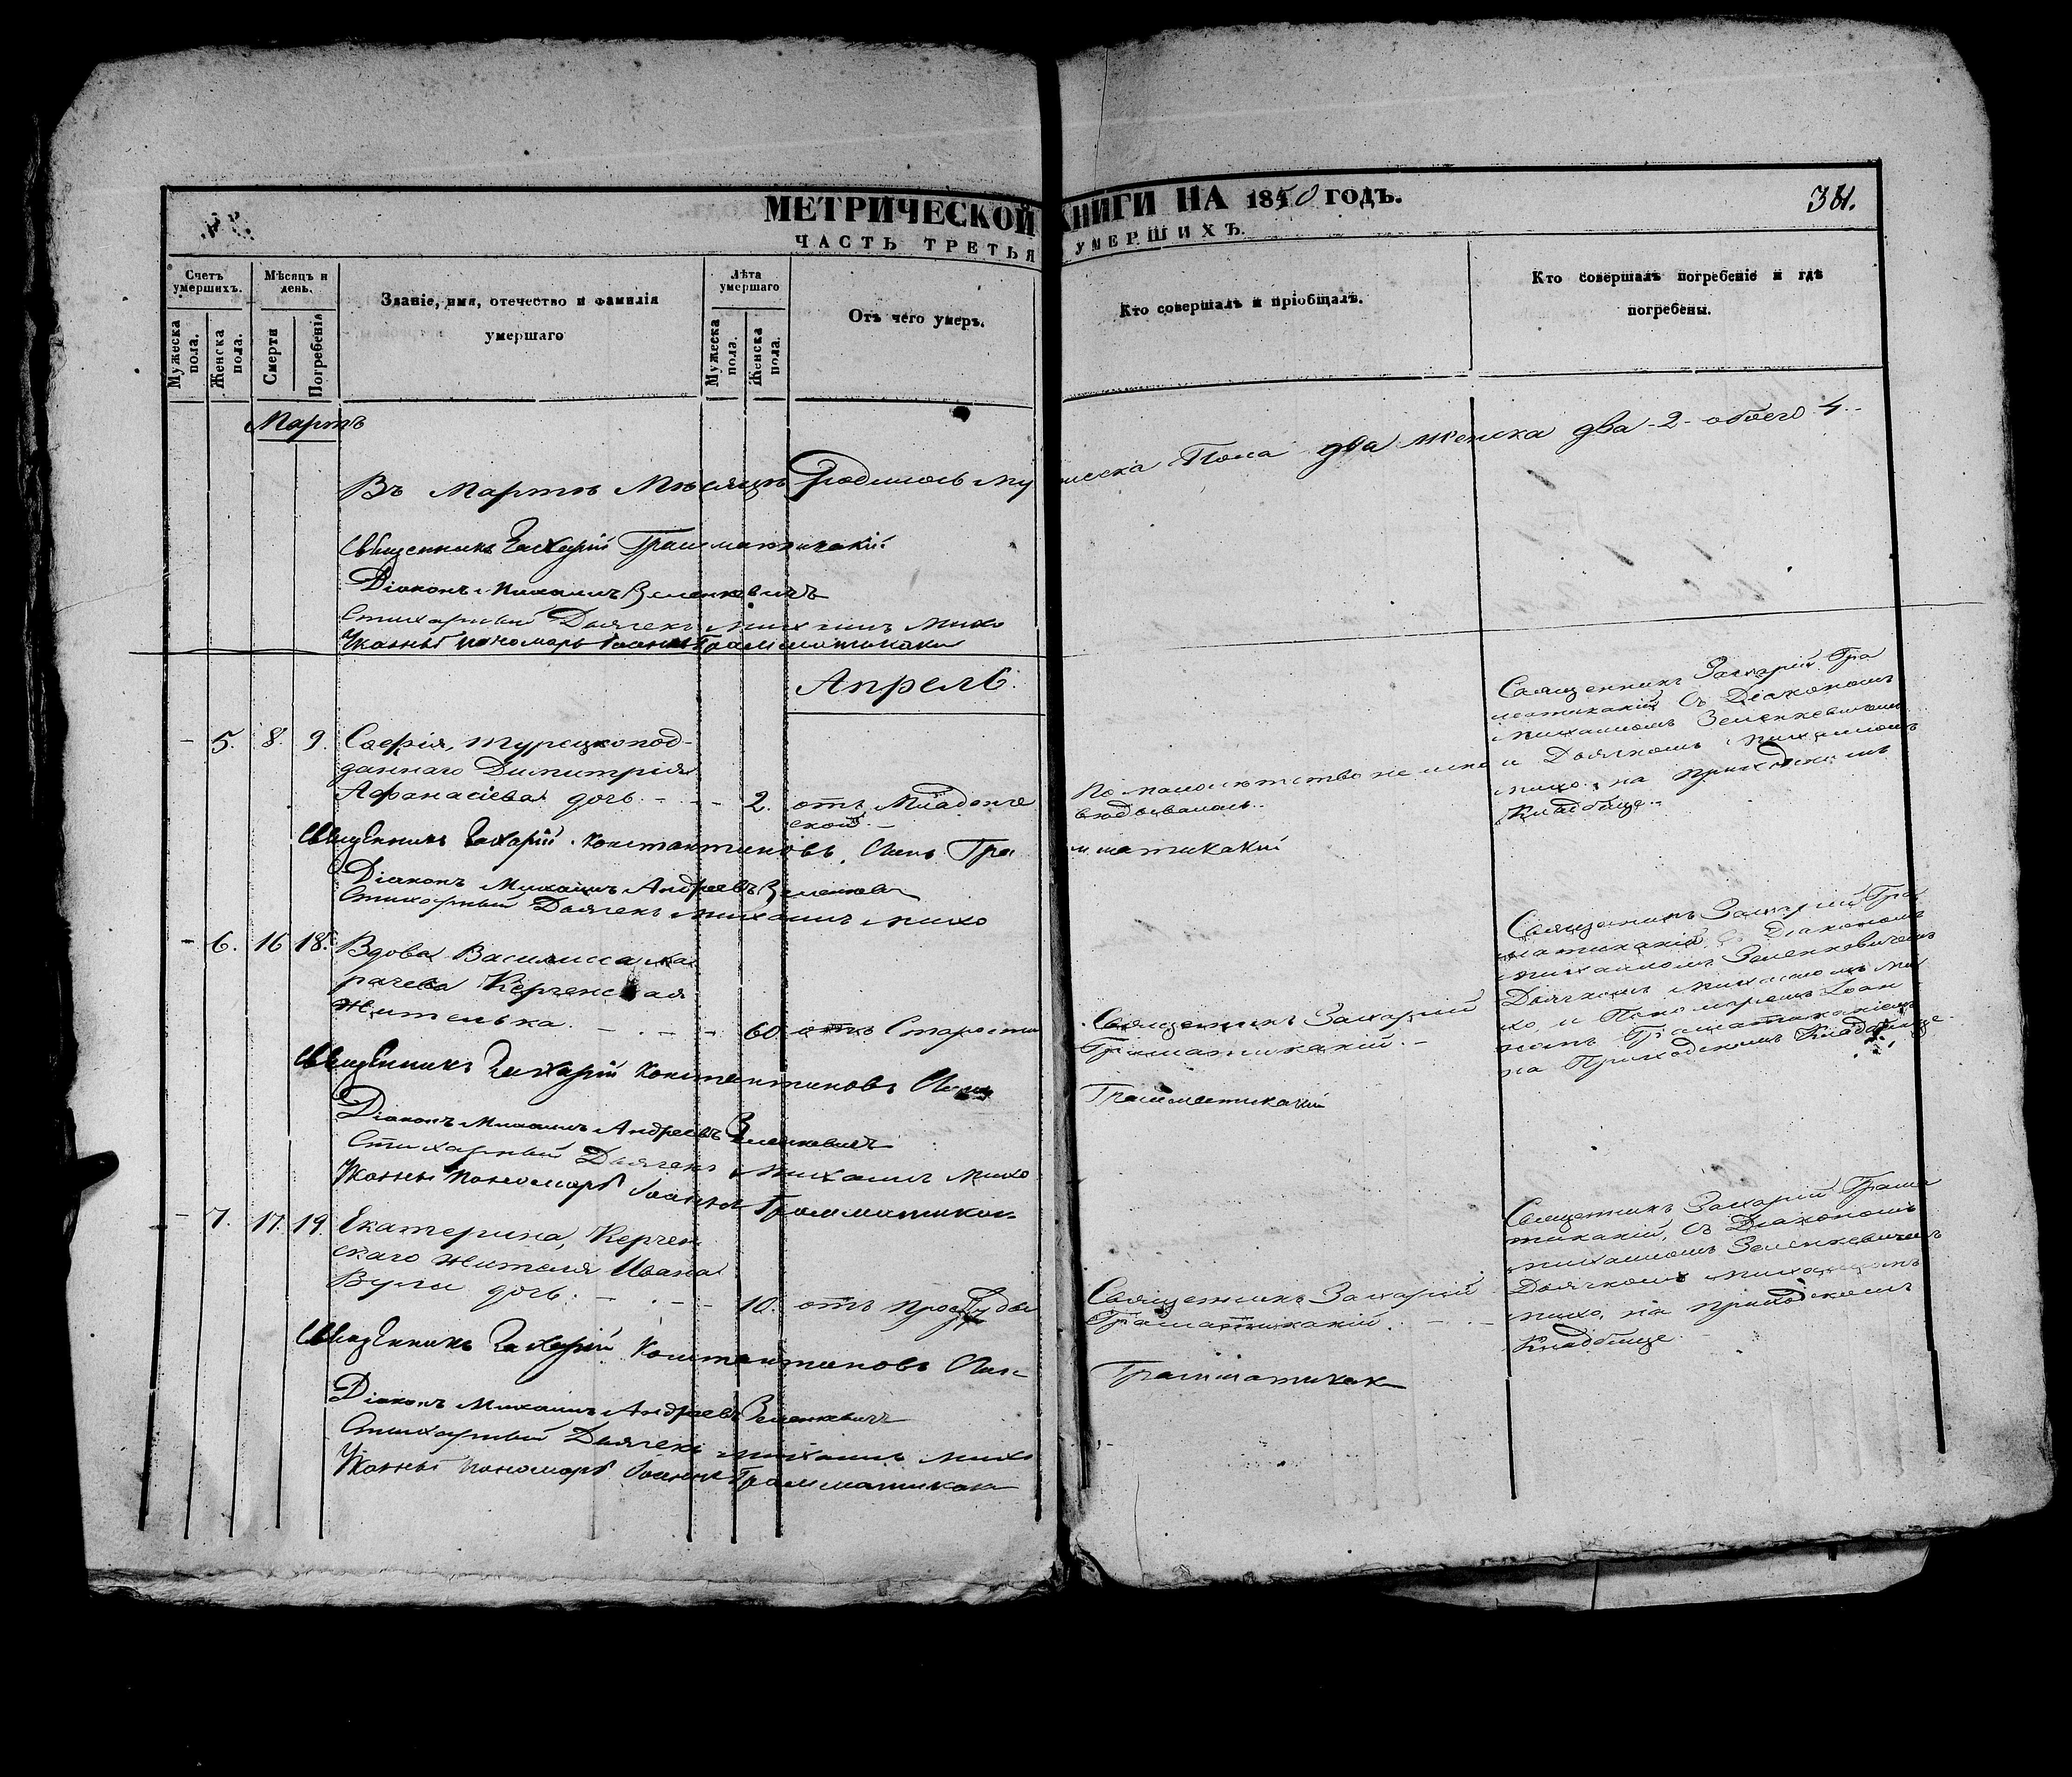 МЕТРИЧЕСКОЙ КНИГИ НА 1850 ГОДЪ.
ЧАСТЬ ТРЕТЬЯ УМЕРШИХЪ.
Счетъ умершихъ.
Мужеска пола.
Женска пола.
Мѣсяцъ и день.
Смерти
Погребенія
Званіе, имя, отечество и фамилія
умершаго
Лѣта умершаго
Мужеска пола.
Женска пола.
Отъ чего умеръ.
Кто совершалъ и пріобщалъ.
Кто совершалъ погребеніе и гдѣ
погребены.
Мартъ
Въ Мартѣ Мѣсяцѣ Родилось мужеска Пола два женска два -2- обоего 4.
Священникъ Захарій Грамматикакій
Діаконъ Михаилъ Зеленкевичъ
Стихарный Дьячекъ Михаилъ Михо
Указный пономарь Іоаннъ Грамматикаки
Апрель.
- 5. 8. 9. Софія, турецкопод-
даннаго Димитрія
Афанасіева дочь. - 2. отъ Младенче
ской. -
По малолѣтство не испо
вѣдывалась.
Священникъ Захарій Гра
матикакій съ Діакономъ
Михаиломъ Зеленкевичемъ
и Дьячкомъ Михаиломъ
Михо, на приходскомъ
Кладбище.
Священникъ Захарій Константиновъ Сынъ Грамматикакій
Діаконъ Михаилъ Андреевъ Зеленкеви
Стихарный Дьячекъ Михаилъ Михо
- 6. 16 18. Вдова Василисса Ка
рачева Керченская
жителька. - 60. отъ Старости
Священникъ Захарій
Граматикакій. -
Священникъ Захарій Гра
матикакій съ Діакономъ
Михаиломъ Зеленкевичемъ
Дьячкомъ Михаиломъ Ми
хо, и Пономаремъ Іоан
номъ Граматикакіемъ
на Приходскомъ Кладбище.
Священникъ Захарій Константиновъ Сынъ
Грамматикакій
Діаконъ Михаилъ Андреевъ Зеленкевичъ
Стихарный Дьячекъ Михаилъ Михо
Указный Пономарь Іоаннъ Грамматикак
- 7. 17. 19. Екатерина, Керчен
скаго жителя Ивана
Вулы дочь. - 10. отъ простуды
Священникъ Захарій
Граматикакій. -
Священникъ Захарій Грама
тикакій, съ Діакономъ
Михаиломъ Зеленкевичемъ
Дьячкомъ Михаиломъ
Михо, на приходскомъ
Кладбище.
Священникъ Захарій Константиновъ Сын
Грамматикак
Діаконъ Михаилъ Андреевъ Зеленкевичъ
Стихарный Дьячекъ Михаилъ Михо
Указный Пономарь Іоаннъ Грамматикак